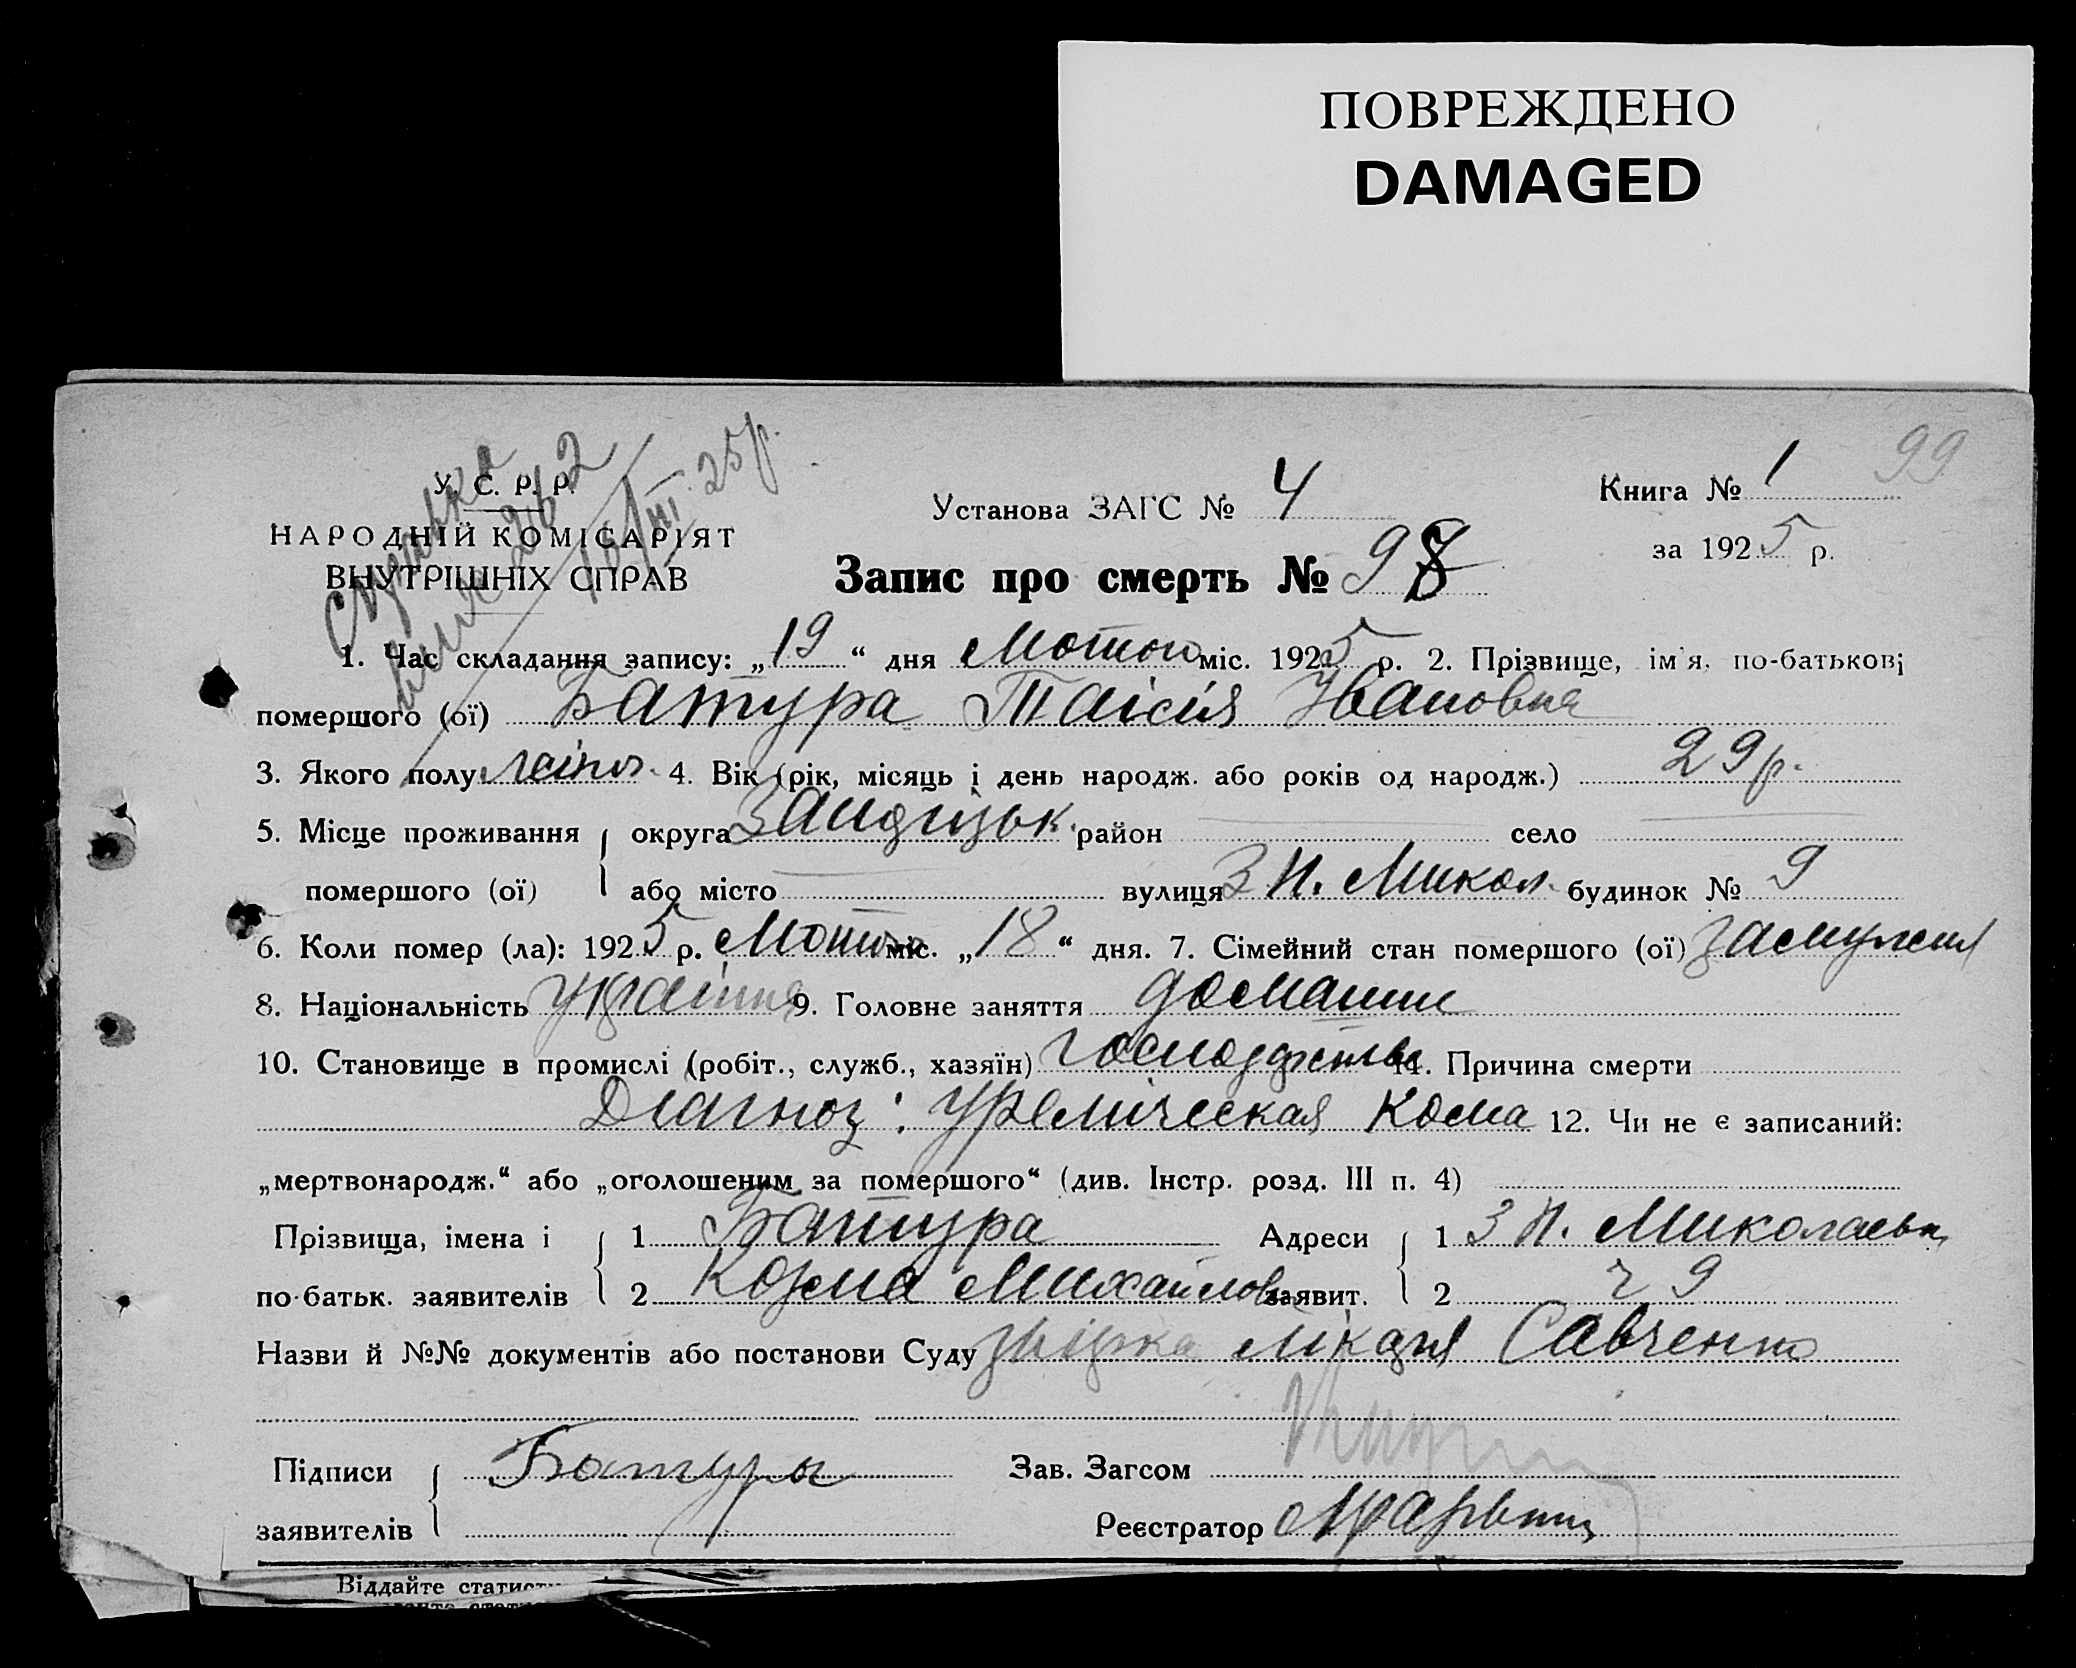 ПОВРЕЖДЕНО
DAMAGED
99
У. С. Р. Р.
НАРОДНІЙ КОМІСАРІЯТ
ВНУТРІШНІХ СПРАВ
Справка
262
16/III 25 р.
Установа ЗАГС № 4
Книга № 1
за 1925 р.
Запис про смерть № 98
1. Час складання запису: „19“ дня Лютого міс. 1925 р. 2. Прізвище, ім'я, по-батькові
помершого (ої) Батура Таісія Івановна
3. Якого полу жіноч. 4. Вік (рік, місяць і день народж. або років од народж.) 29 р.
5. Місце проживання округа район село
помершого (ої) або місто вулиця З П. Микол. будинок № 9
6. Коли помер (ла): 1925 р. Лютого міс. „18“ дня. 7. Сімейний стан помершого (ої) замужня
8. Національність україн. 9. Головне заняття домашнє
10. Становище в промислі (робіт., служб., хазяїн) господарство 11. Причина смерти
Діагноз: Уремическая кома 12. Чи не є записаний:
„мертвонародж.“ або „оголошеним за помершого“ (див. Інстр. розд. III п. 4)
Прізвища, імена і 1 Батура Адреси 1 З П. Миколаевк,
по-батьк. заявителів 2 Козма Михайлов заявит. 2 ч 9
Назви й №№ документів або постанови Суду лікаря Савченко
Підписи Батура Зав. Загсом
заявителів Реєстратор
Віддайте статист